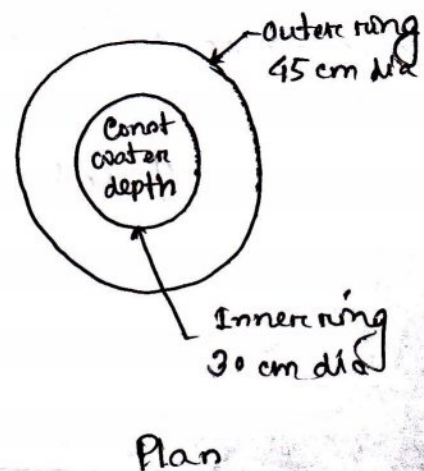 Outer ring
45 cm dia
Const
water
depth
Inner ring
30 cm dia
Plan